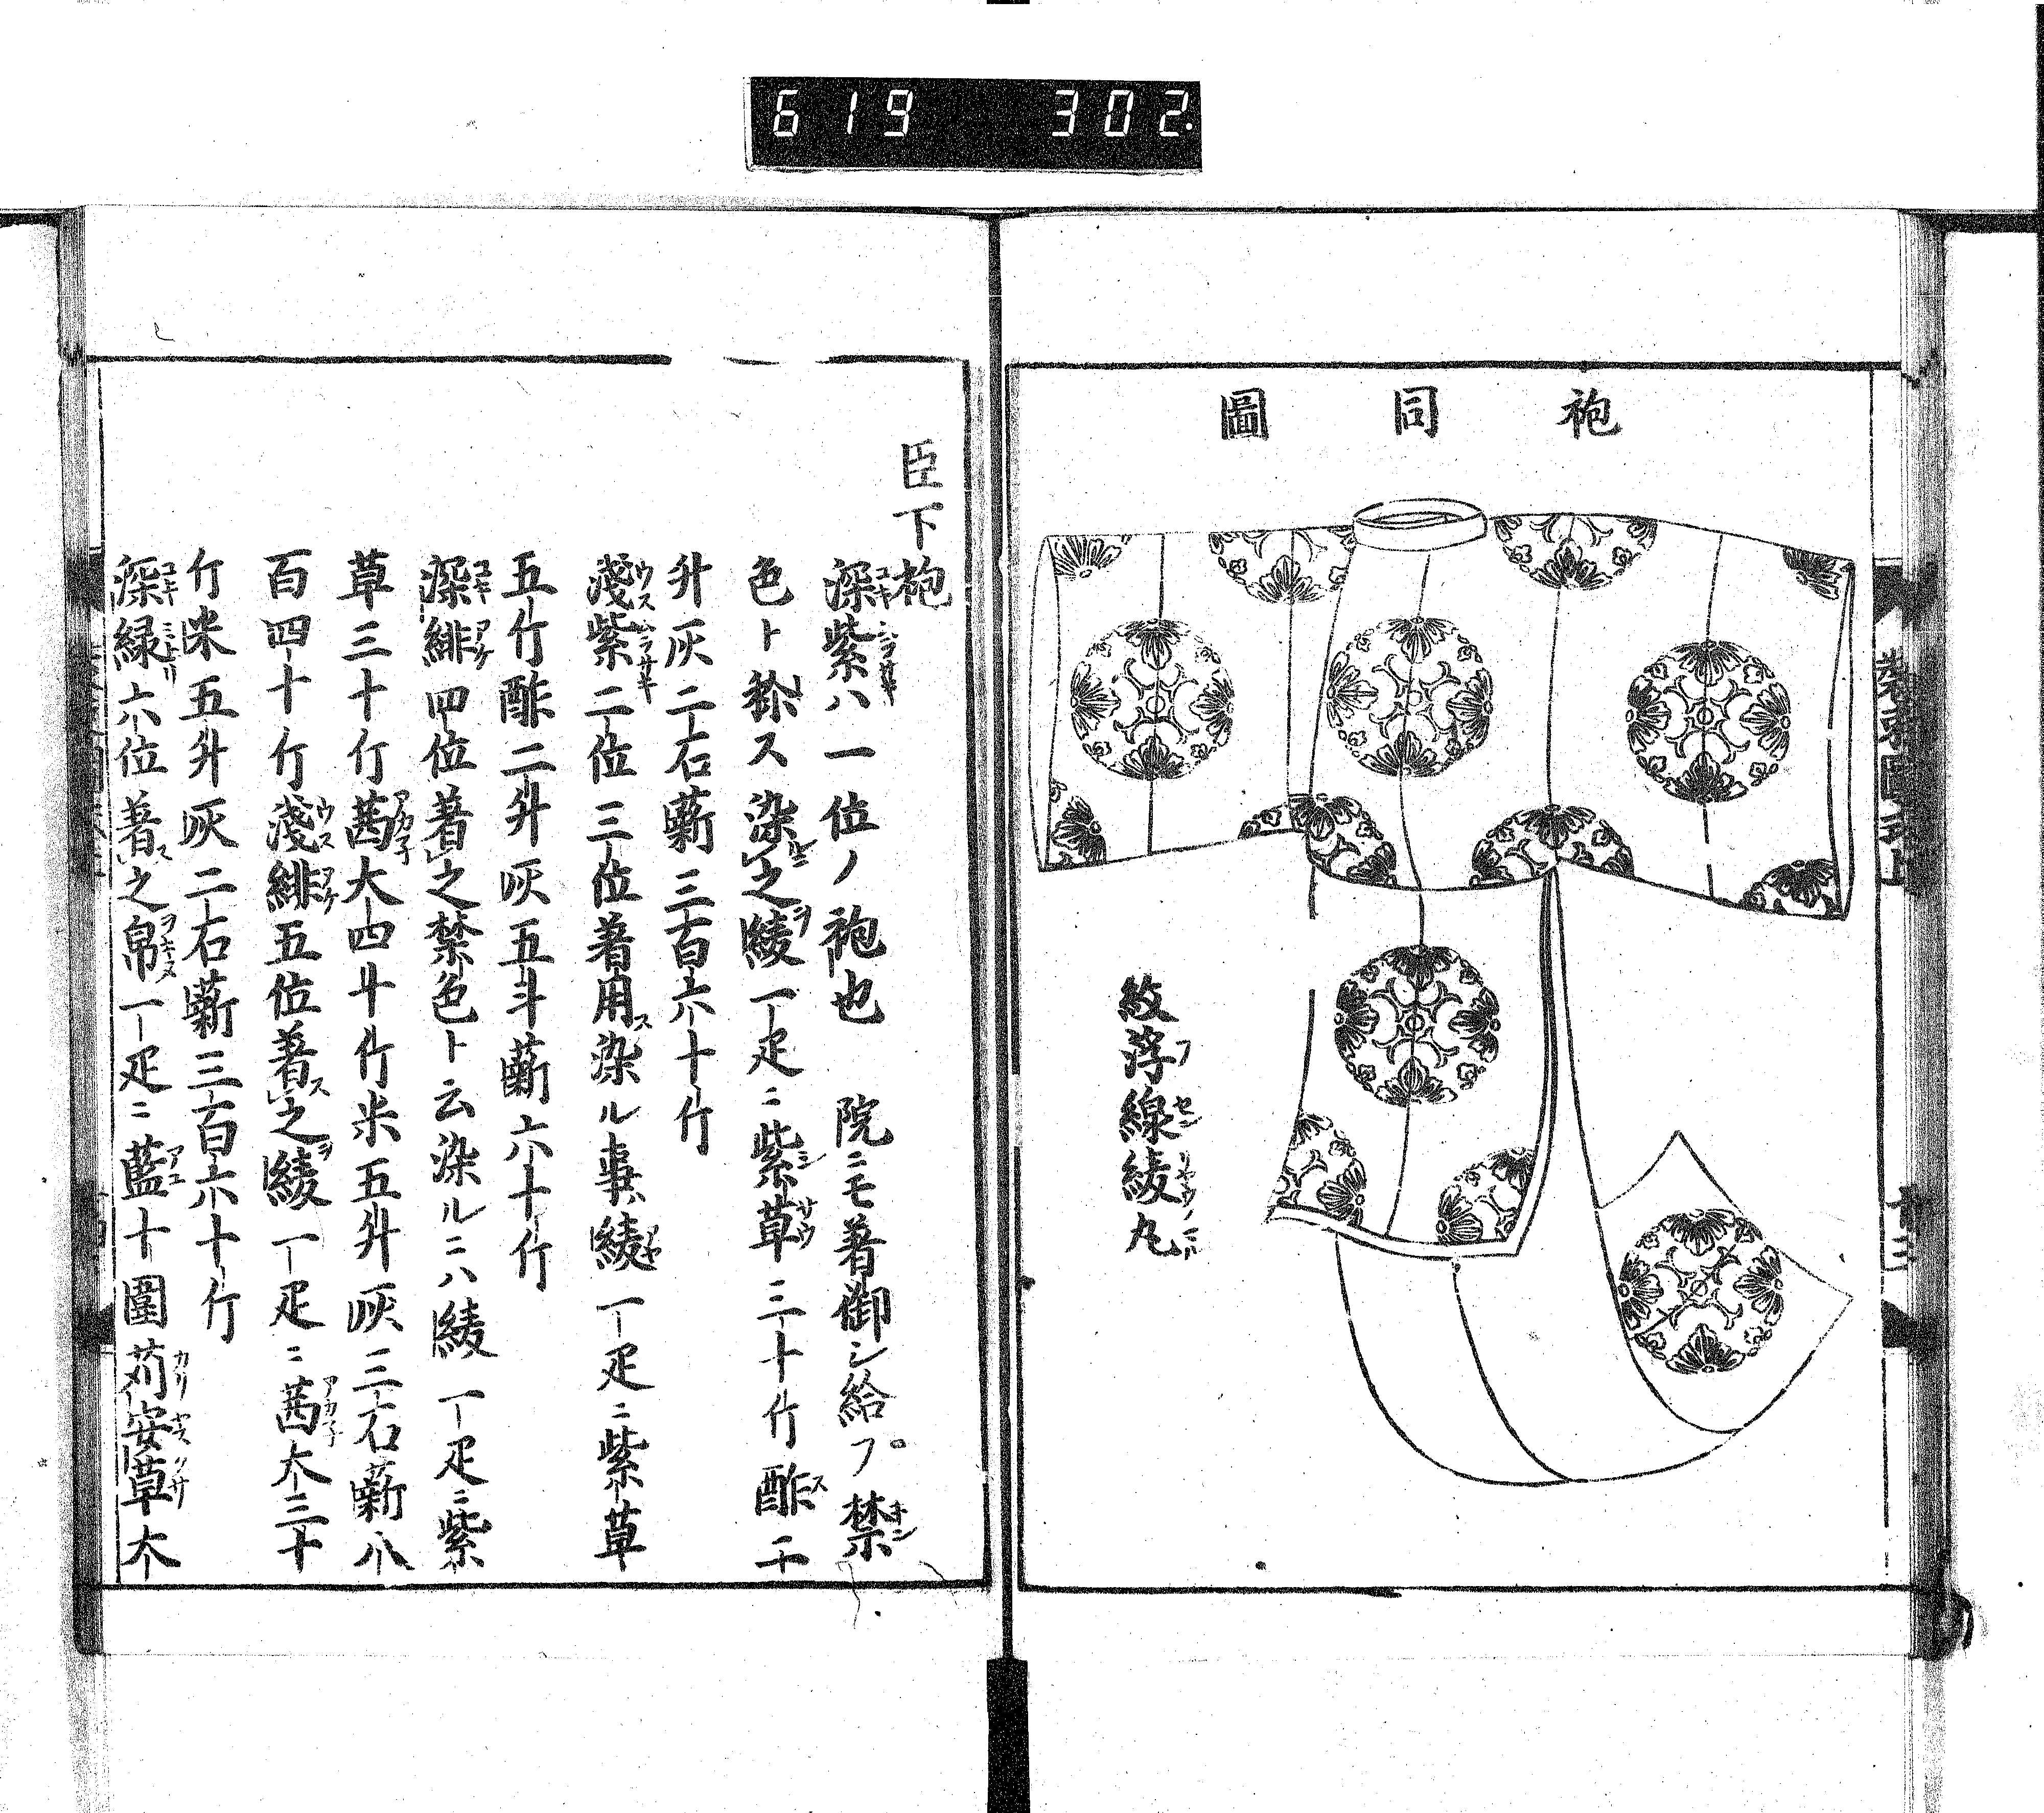 619 302
袍同圖
紋浮線綾丸
臣下袍
深紫ハ一位ノ袍也 院ニモ著御シ給フ。禁
色ト稱ス染之綾一疋ニ紫草三十斤酢二
升灰二石薪三百六十斤
淺紫二位三位著用ス染ル事綾一疋ニ紫草
五斤酢二升灰五斗薪六十斤
深緋四位著之禁色ト云染ルニハ綾一疋ニ紫
草三十斤茜大四十斤米五升灰三石薪八
百四十斤淺緋五位著ス之綾一疋ニ茜大三十
斤米五升灰二石薪三百六十斤
深緑六位著ス之帛一疋ニ藍十圍苅安草大